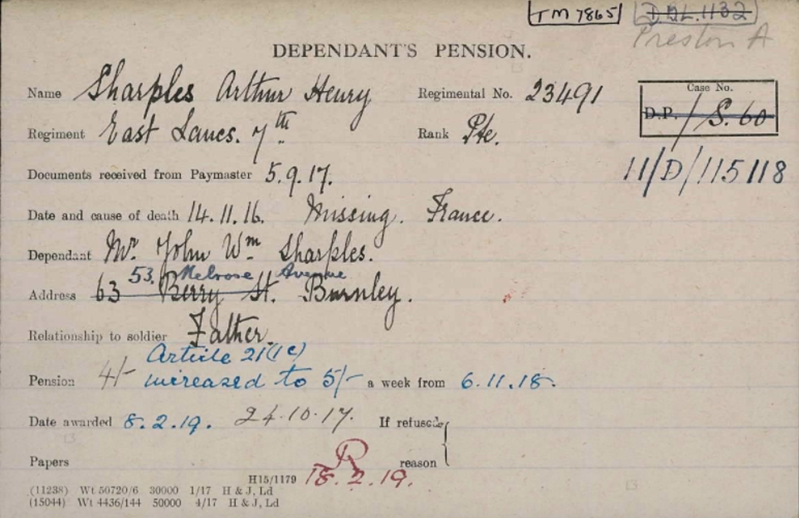 TM 7865 D.BL.1132
Preston A
DEPENDANT'S PENSION.
Name Sharples Arthur Henry Regimental No. 23491
Case No.
D.P. / S. 60
Regiment East Lancs. 7th Rank Pte.
11/D/115118
Documents received from Paymaster 5.9.17.
Date and cause of death 14.11.16. Missing. France.
Dependant Mr John Wm Sharples.
53. Melrose Avenue
Address 63 Berry St. Burnley.
Relationship to soldier Father.
Article 21(1c)
Pension 4/- increased to 5/- a week from 6.11.18.
Date awarded 8.2.19. 24.10.17. If refused,
Papers R reason
H15/1179 18.2.19.
(11238) Wt 50720/6 30000 1/17 H & J, Ld
(15044) Wt 4436/144 50000 4/17 H & J, Ld